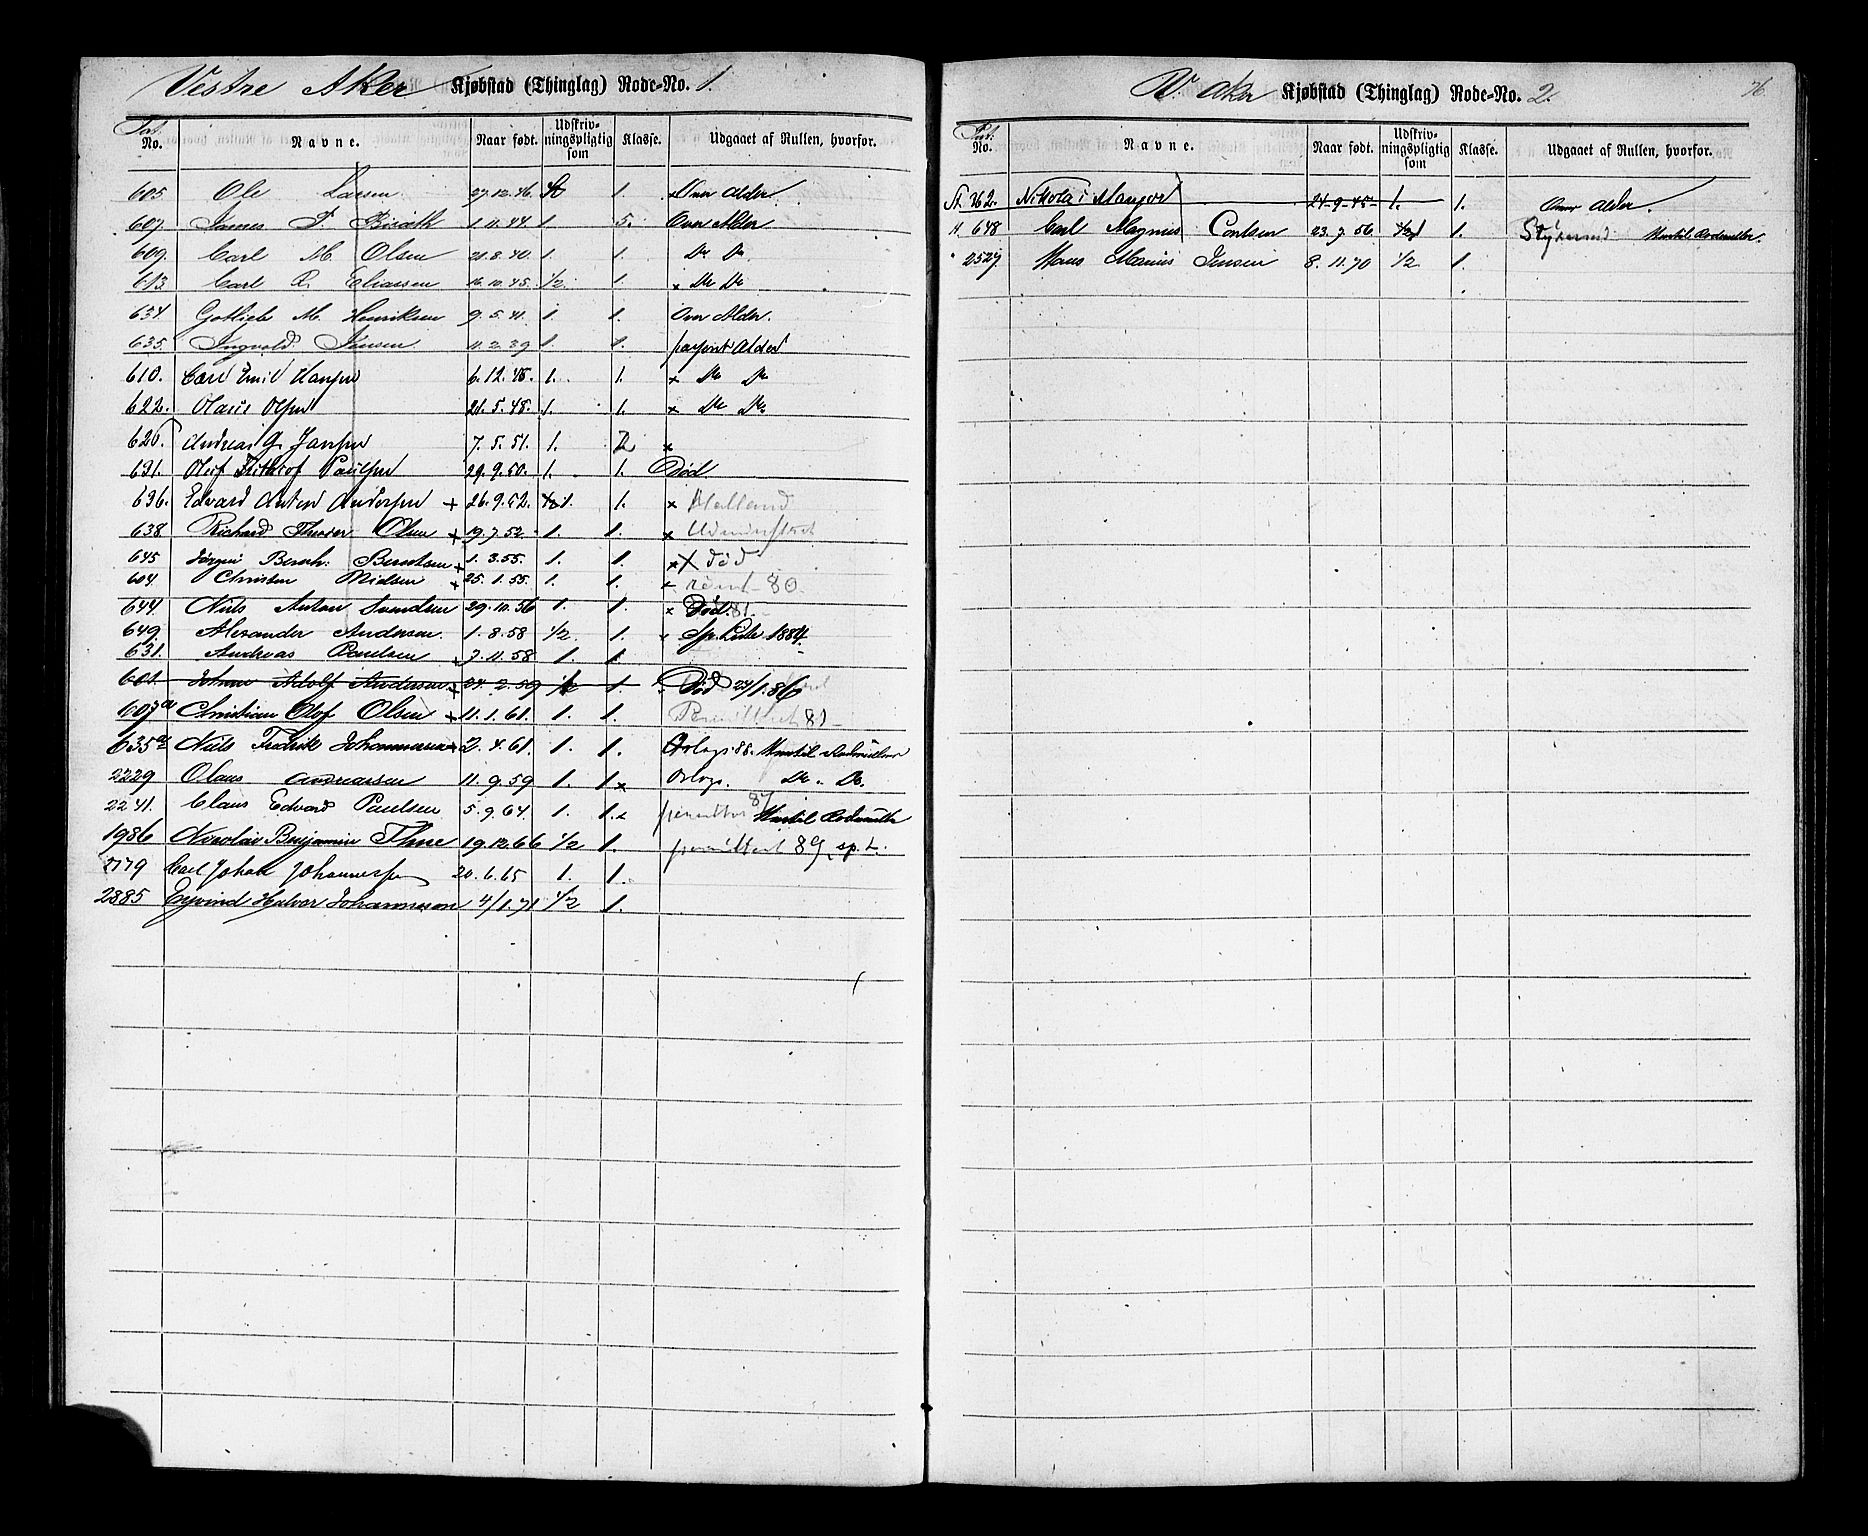 Vestre Aker Kjøbstad (Thinglag) Rode-No. 1.
Pat. No. Navne. Naar født. Udskrivningspligtig som Klasse. Udgaaet af Rullen, hvorfor.
605 Ole Larsen 27.12.46. 1. Over Alder
607. James P. 1.11.44. 1. 5. Over Alder
609. Carl M. Olsen 21.8.40. 1. 1. Do Do.
613. Carl R. Eliassen 16.10.45. 1/2 1. x Do Do
634. Gottlieb M. Henriksen 9.5.41. 1. 1. Over Alder.
635. Ingvald Jensen 11.2.39 1. 1. Alder
610. Carl Emil Hansen 6.12.48. 1. 1. x Do Do
622. Olaus Olsen 21.5.48. 1. 1. x Do Do.
620. Andreas G. Jansen 7.5.51. 1. 2 x
631. Oluf Fithiof Paulsen 29.9.50. 1. 1. Død
636. Edvard Anton Andersen + 26.9.52. 1. 1. x Halland
638 Richard Theodor Olsen + 19.7.52. 1. 1. x
645 Jørgen Bernh. Berntsen + 1.3.55. 1. 1. x X død
604 Christen Nielsen + 25.1.55. 1. 1. rømt 80.
644 Nils Anton Svendsen 29.10.56 1. 1. x Død 81.
649. Alexander Andersen. 1.8.58 1/2 1. Sp. Liste 1884.
631. Andreas Paulsen + 7.11.58 1. 1.
601. Johan Adolf Andersen + 24.2.59 1/2 1. Død 24/1.86
607a Christian Olof Olsen + 11.1.61. 1. 1. Permitteret 81
635a Nils Fredrik Johannessen 2.4.61. 1. 1. Orlogs 88. Hentil Rodemester
2229 Olaus Andreassen 11.9.59 1. 1. x Orlogs. Do. Do.
2241. Claus Edvard Paulsen 5.9.64. 1. 1. x permitter 87 Hentil Rodemester
1986 Nicolai Benjamin Thue 19.12.66 1/2 1. permittert 89. sp. L.
2779 Carl Johan Johannessen 20.6.65 1. 1.
2885 Eyvind Halvor Johannesson 4/1.71 1/2 1.
V. Aker Kjøbstad (Thinglag) Rode-No. 2. 76
Pat. No. Navne. Naar født. Udskrivningspligtig som Klasse. Udgaaet af Rullen, hvorfor.
262. Nikolai Mangor 24-9-45- 1. 1. Over Alder.
648 Carl Magnus Carlsen 23.7.56 1/2 1. Hentil Rodemester.
2527 Hans Marius Jensen 8.11.70 1/2 1.